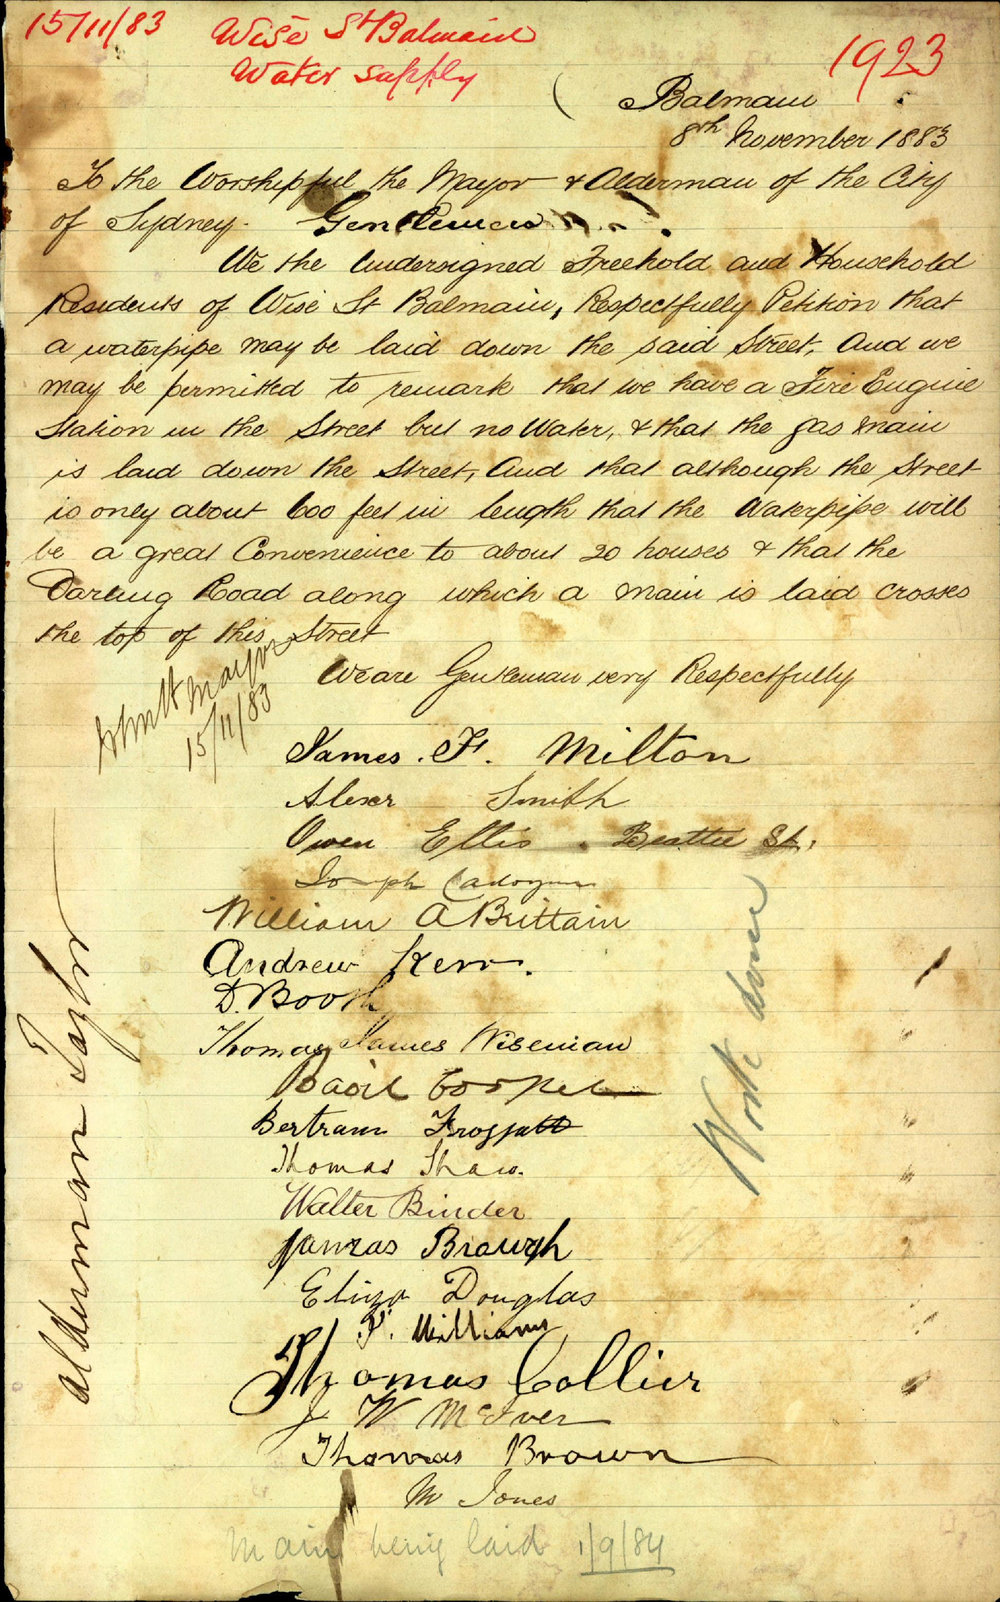 15/11/83 Wise St Balmain
Water supply
1923
Balmain
8th November 1883
To the Worshipful the Mayor & Alderman of the City
of Sydney. Gentlemen
We the Undersigned Freehold and Household
Residents of Wise St Balmain, Respectfully Petition that
a waterpipe may be laid down the said Street, And we
may be permitted to remark that we have a Fire Engine
Station in the Street but no Water, & that the gas main
is laid down the Street, And that although the Street
is only about 600 feet in length that the Waterpipe will
be a great Convenience to about 20 houses & that the
Darling Road along which a main is laid crosses
the top of this Street
We are Gentleman very Respectfully
Mayor
15/11/83
James. F. Milton
Alexr Smith
Owen Ellis. Beattie St.
Joseph Cadogan
William A Brittain
Andrew Kerr.
D. Booth
Thomas James Wiseman
David Cooper
Bertram Froggatt
Thomas Shaw.
Walter Binder
James Brough
Eliza Douglas
P. Williams
Thomas Collier
J W McIver
Thomas Brown
M Jones
Alderman Taylor
Work done
Main being laid 1/9/84